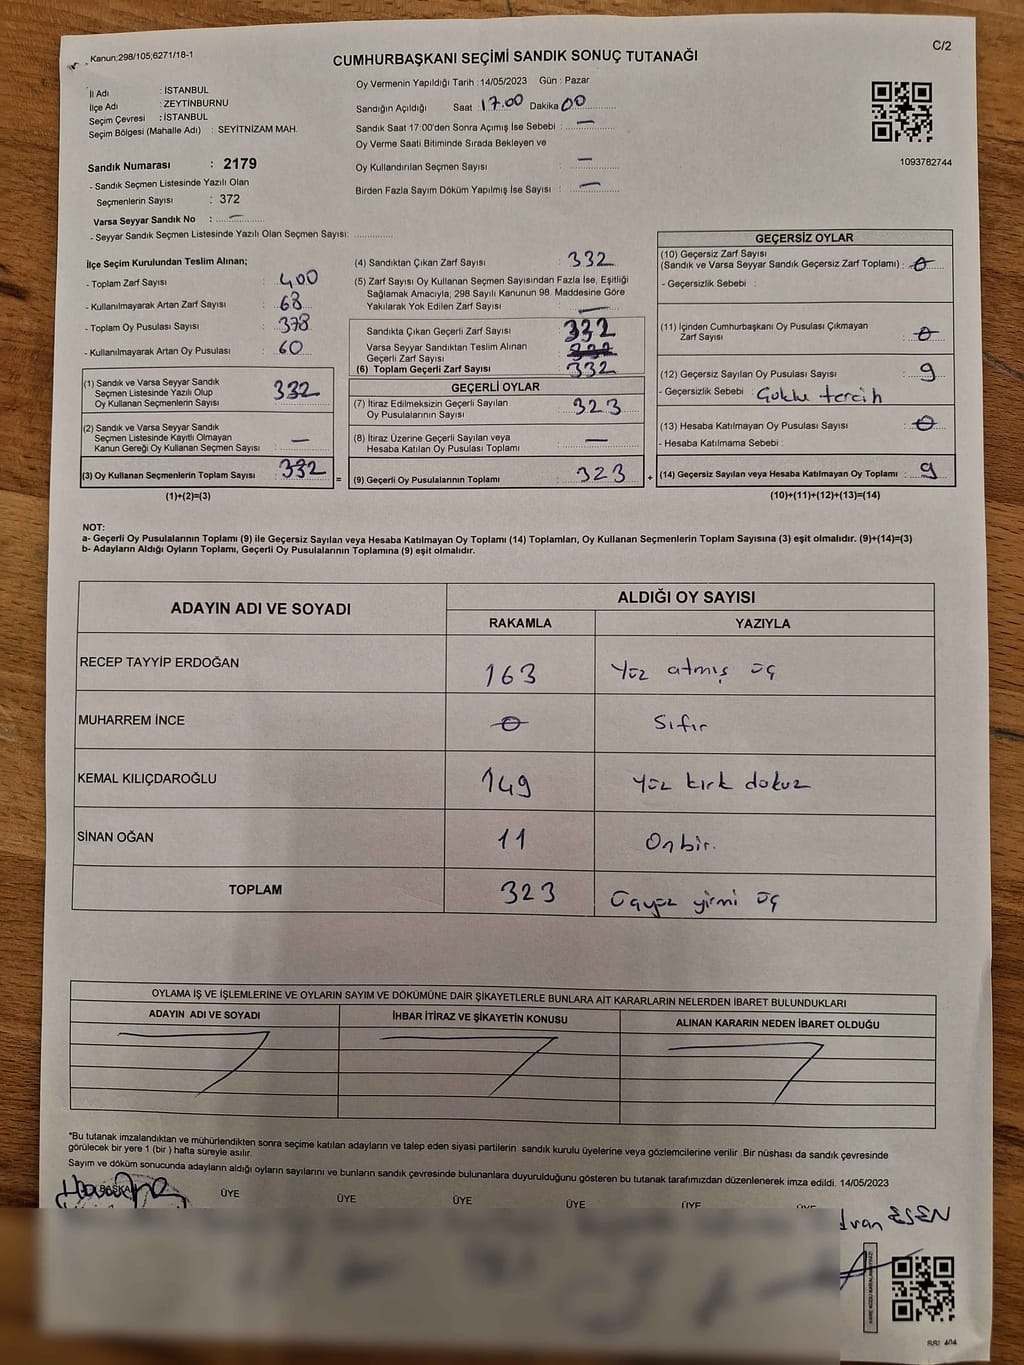 Kanun:298/105;6271/18-1
C/2
CUMHURBAŞKANI SEÇİMİ SANDIK SONUÇ TUTANAĞI
İl Adı : İSTANBUL
İlçe Adı : ZEYTİNBURNU
Seçim Çevresi : İSTANBUL
Seçim Bölgesi (Mahalle Adı) : SEYİTNİZAM MAH.
Sandık Numarası : 2179
- Sandık Seçmen Listesinde Yazılı Olan
Seçmenlerin Sayısı : 372
Varsa Seyyar Sandık No : —
- Seyyar Sandık Seçmen Listesinde Yazılı Olan Seçmen Sayısı:
Oy Vermenin Yapıldığı Tarih :14/05/2023 Gün : Pazar
Sandığın Açıldığı Saat :17.00 Dakika 00
Sandık Saat 17:00'den Sonra Açımış İse Sebebi : —
Oy Verme Saati Bitiminde Sırada Bekleyen ve
Oy Kullandırılan Seçmen Sayısı : —
Birden Fazla Sayım Döküm Yapılmış İse Sayısı : —
1093782744
İlçe Seçim Kurulundan Teslim Alınan;
- Toplam Zarf Sayısı : 400
- Kullanılmayarak Artan Zarf Sayısı : 68
- Toplam Oy Pusulası Sayısı : 378
- Kullanılmayarak Artan Oy Pusulası : 60
(1) Sandık ve Varsa Seyyar Sandık
Seçmen Listesinde Yazılı Olup
Oy Kullanan Seçmenlerin Sayısı : 332
(2) Sandık ve Varsa Seyyar Sandık
Seçmen Listesinde Kayıtlı Olmayan
Kanun Gereği Oy Kullanan Seçmen Sayısı : —
(3) Oy Kullanan Seçmenlerin Toplam Sayısı : 332 =
(1)+(2)=(3)
(4) Sandıktan Çıkan Zarf Sayısı : 332
(5) Zarf Sayısı Oy Kullanan Seçmen Sayısından Fazla İse, Eşitliği
Sağlamak Amacıyla, 298 Sayılı Kanunun 98. Maddesine Göre
Yakılarak Yok Edilen Zarf Sayısı : —
Sandıkta Çıkan Geçerli Zarf Sayısı : 332
Varsa Seyyar Sandıktan Teslim Alınan
Geçerli Zarf Sayısı
(6) Toplam Geçerli Zarf Sayısı : 332
GEÇERLİ OYLAR
(7) İtiraz Edilmeksizin Geçerli Sayılan
Oy Pusulalarının Sayısı : 323
(8) İtiraz Üzerine Geçerli Sayılan veya
Hesaba Katılan Oy Pusulası Toplamı : —
(9) Geçerli Oy Pusulalarının Toplamı : 323 +
GEÇERSİZ OYLAR
(10) Geçersiz Zarf Sayısı
(Sandık ve Varsa Seyyar Sandık Geçersiz Zarf Toplamı) : 0
- Geçersizlik Sebebi :
(11) İçinden Cumhurbaşkanı Oy Pusulası Çıkmayan
Zarf Sayısı : 0
(12) Geçersiz Sayılan Oy Pusulası Sayısı : 9
- Geçersizlik Sebebi : Çoklu tercih
(13) Hesaba Katılmayan Oy Pusulası Sayısı : 0
- Hesaba Katılmama Sebebi :
(14) Geçersiz Sayılan veya Hesaba Katılmayan Oy Toplamı : 9
(10)+(11)+(12)+(13)=(14)
NOT:
a- Geçerli Oy Pusulalarının Toplamı (9) ile Geçersiz Sayılan veya Hesaba Katılmayan Oy Toplamı (14) Toplamları, Oy Kullanan Seçmenlerin Toplam Sayısına (3) eşit olmalıdır. (9)+(14)=(3)
b- Adayların Aldığı Oyların Toplamı, Geçerli Oy Pusulalarının Toplamına (9) eşit olmalıdır.
ADAYIN ADI VE SOYADI ALDIĞI OY SAYISI
RAKAMLA YAZIYLA
RECEP TAYYİP ERDOĞAN 163 Yüz atmış üç
MUHARREM İNCE 0 Sıfır
KEMAL KILIÇDAROĞLU 149 Yüz kırk dokuz
SİNAN OĞAN 11 On bir.
TOPLAM 323 Üçyüz yirmi üç
OYLAMA İŞ VE İŞLEMLERİNE VE OYLARIN SAYIM VE DÖKÜMÜNE DAİR ŞİKAYETLERLE BUNLARA AİT KARARLARIN NELERDEN İBARET BULUNDUKLARI
ADAYIN ADI VE SOYADI İHBAR İTİRAZ VE ŞİKAYETİN KONUSU ALINAN KARARIN NEDEN İBARET OLDUĞU
*Bu tutanak imzalandıktan ve mühürlendikten sonra seçime katılan adayların ve talep eden siyasi partilerin sandık kurulu üyelerine veya gözlemcilerine verilir .Bir nüshası da sandık çevresinde
görülecek bir yere 1 (bir ) hafta süreyle asılır.
Sayım ve döküm sonucunda adayların aldığı oyların sayılarını ve bunların sandık çevresinde bulunanlara duyurulduğunu gösteren bu tutanak tarafımızdan düzenlenerek imza edildi. 14/05/2023
BAŞKAN ÜYE ÜYE ÜYE ÜYE ÜYE ÜYE
ESEN